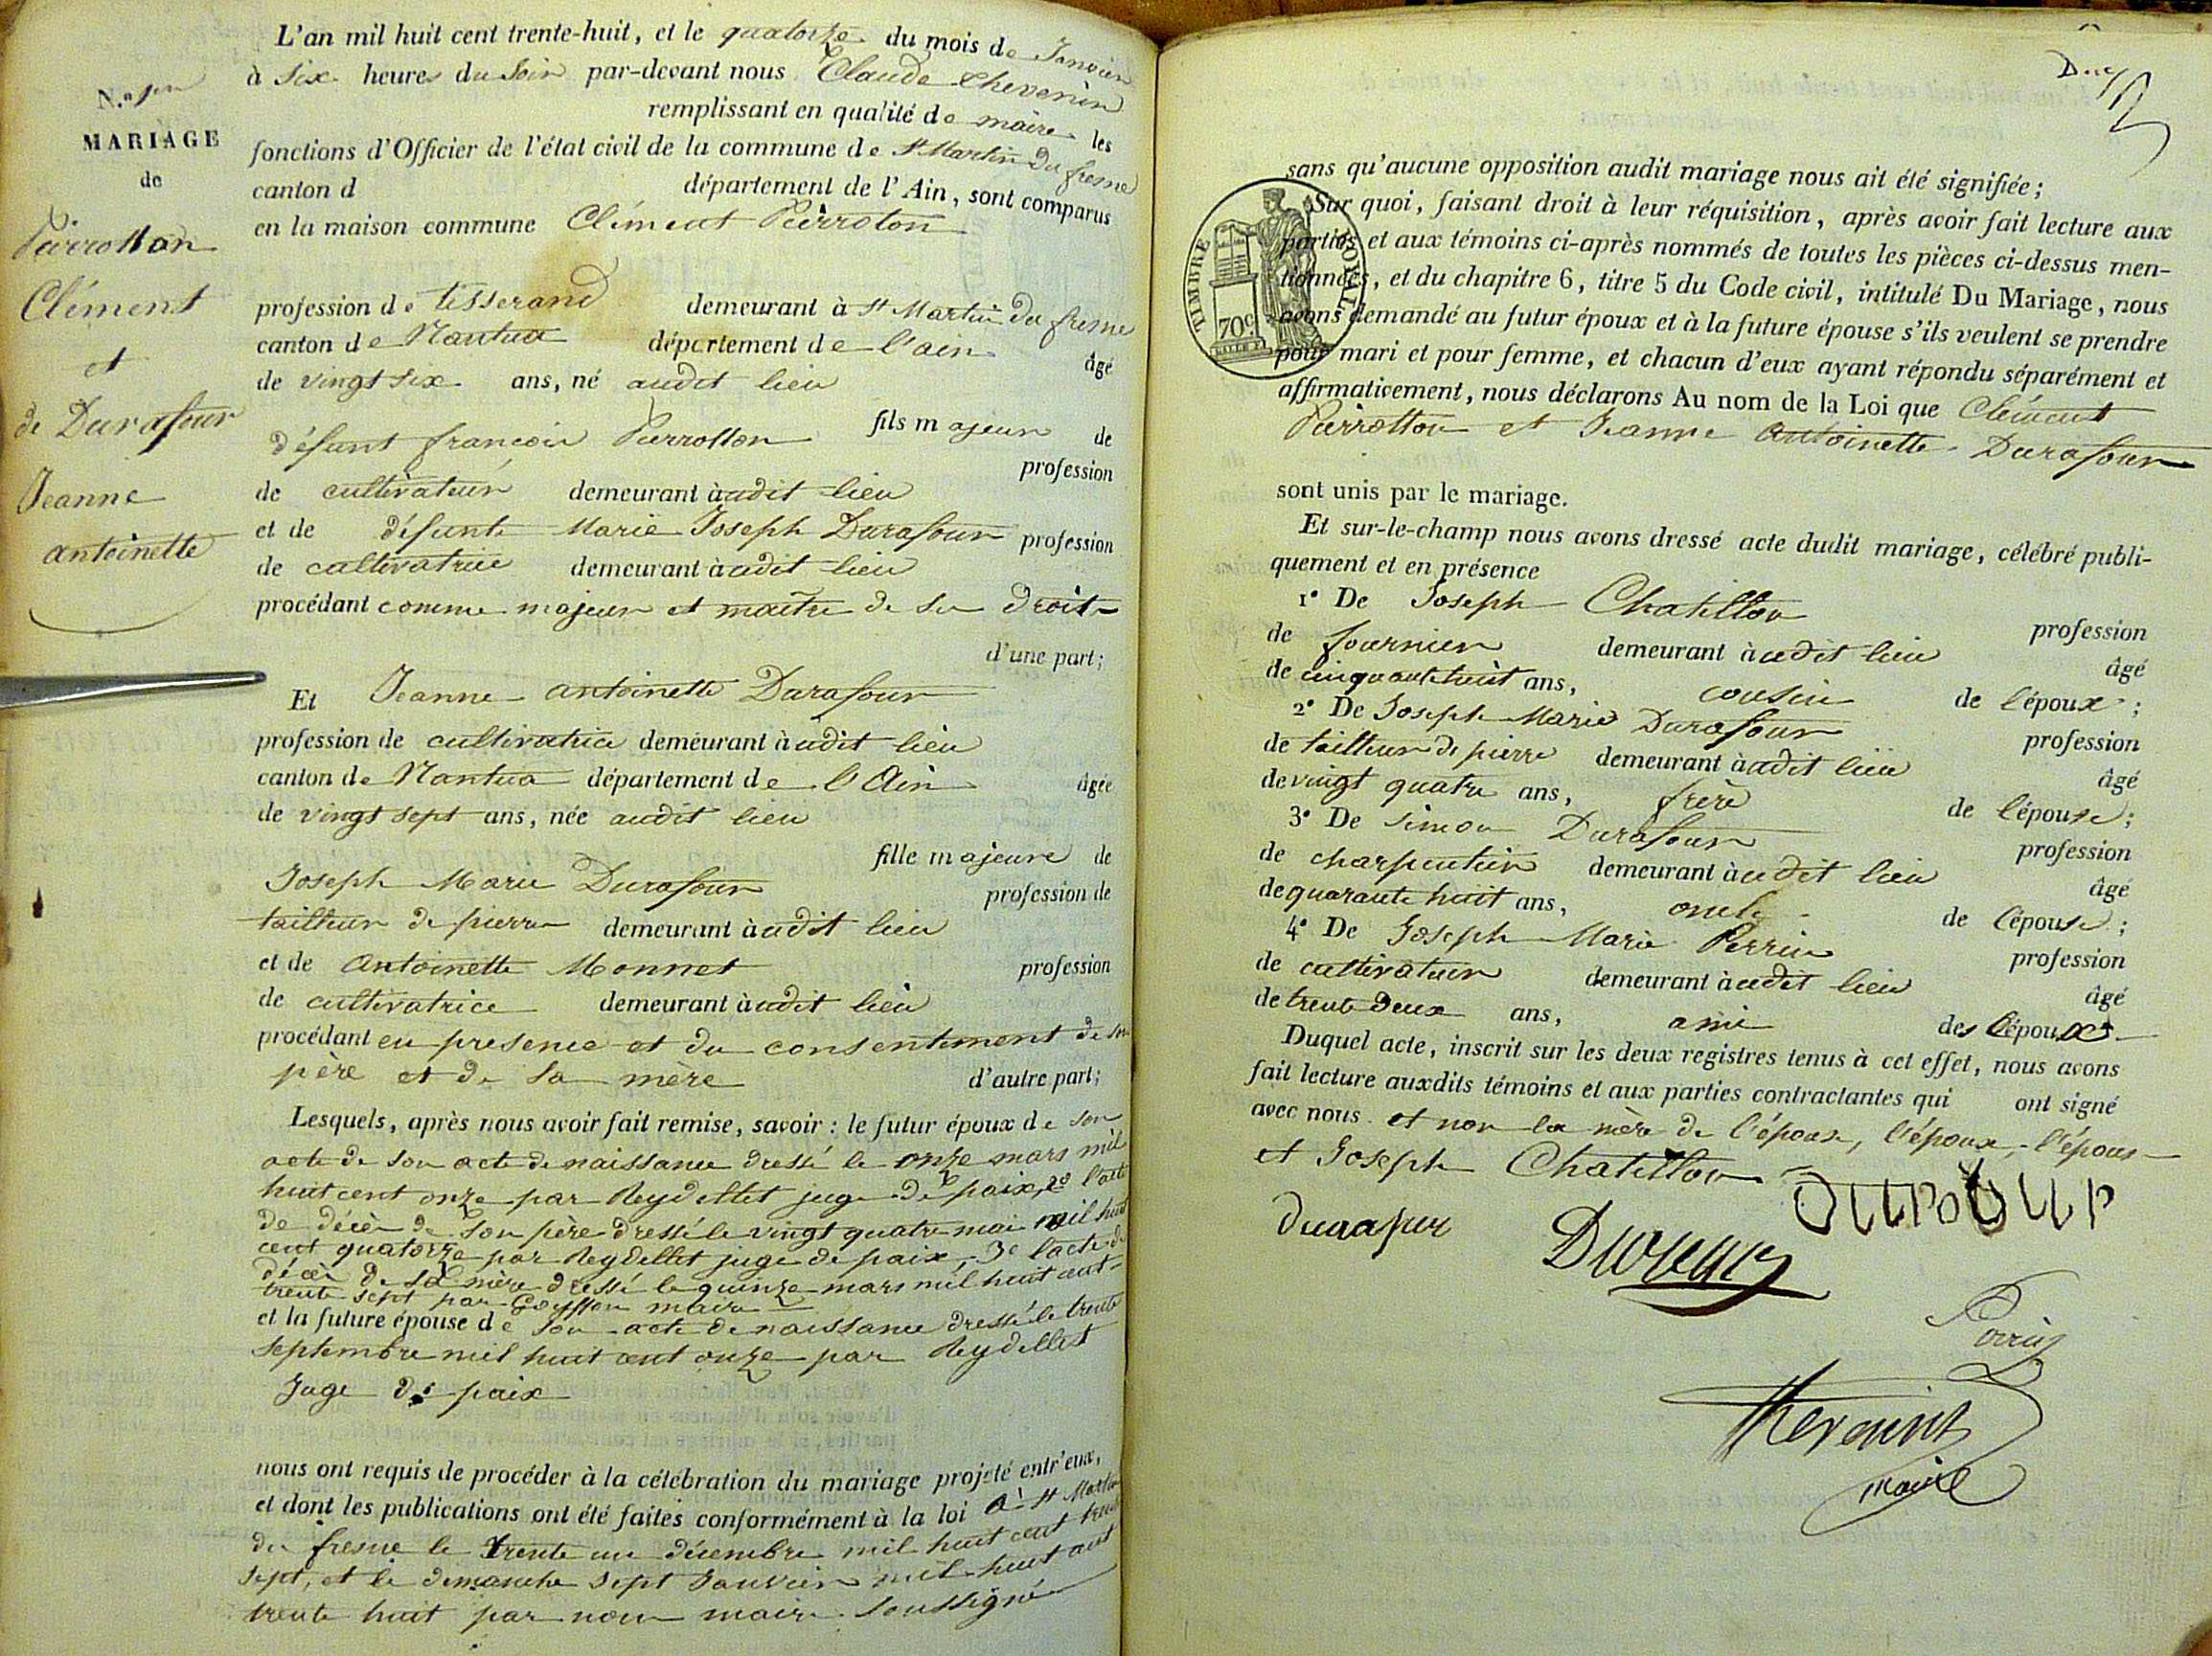 L'an mil huit cent trente-huit, et le quatorze du mois de Janvier
à six heures du soir par-devant nous Claude Chevenin
remplissant en qualité de maire les
fonctions d'Officier de l'état civil de la commune de St Martin du fresne
canton d département de l'Ain, sont comparus
en la maison commune Clément Pierroton
N.º
MARIAGE
de
Pierrotton
Clément
et
de Durafour
Jeanne
antoinette
profession de tisserand demeurant à St Martin du fresne
canton de Nantua département de l'ain âgé
de vingt six ans, né audit lieu
fils majeur de
défunt françois Pierrotton profession
de cultivateur demeurant audit lieu
et de défunte Marie Joseph Durafour profession
de cultivatrice demeurant audit lieu
procédant comme majeur et maître de ses droits
d'une part;
Et Jeanne antoinette Durafour
profession de cultivatrice demeurant à udit lieu
canton de Nantua département de l'Ain âgée
de vingt sept ans, née audit lieu
fille majeure de
Joseph Marie Durafour profession de
tailleur de pierre demeurant à udit lieu
et de Antoinette Monnet profession
de cultivatrice demeurant à udit lieu
procédant en presence et du consentement de son
père et de sa mère d'autre part;
Lesquels, après nous avoir fait remise, savoir : le futur époux de son
acte de son acte de naissance dressé le onze mars mil
huit cent onze par Reydellet juge de paix, 2º l'acte
de décès de son père dressé le vingt quatre mai mil huit
cent quatorze par Reydellet juge de paix, 3e l'acte de
décès de sa mère dressé le quinze mars mil huit cent
trente sept par maire
et la future épouse de son acte de naissance dressé le trente
septembre mil huit cent onze par Reydellet
Juge de paix
nous ont requis de procéder à la célébration du mariage projeté entr'eux,
et dont les publications ont été faites conformément à la loi à St Martin
du fresne le trente un décembre mil huit cent trente
sept, et le dimanche sept Janvier mil huit cent
trente huit par nous maire soussigné
sans qu'aucune opposition audit mariage nous ait été signifiée;
Sur quoi, faisant droit à leur réquisition, après avoir fait lecture aux
parties et aux témoins ci-après nommés de toutes les pièces ci-dessus men-
tionnées, et du chapitre 6, titre 5 du Code civil, intitulé Du Mariage, nous
avons demandé au futur époux et à la future épouse s'ils veulent se prendre
pour mari et pour femme, et chacun d'eux ayant répondu séparément et
affirmativement, nous déclarons Au nom de la Loi que Clément
Pierrotton et Jeanne Antoinette Durafour
TIMBRE ROYAL
70c
sont unis par le mariage.
Et sur-le-champ nous avons dressé acte dudit mariage, célébré publi-
quement et en présence
1º De Joseph Chatillon profession
de fournier demeurant à udit lieu âgé
de cinquante huit ans, cousin de l'époux;
2º De Joseph Marie Durafour profession
de tailleur de pierre demeurant audit lieu âgé
de vingt quatre ans, frère de l'épouse;
3º De Simon Durafour profession
de charpentier demeurant à udit lieu âgé
de quarante huit ans, oncle de l'épouse;
4º De Joseph Marie Perrin profession
de cultivateur demeurant à udit lieu âgé
de trente deux ans, ami des époux
Duquel acte, inscrit sur les deux registres tenus à cet effet, nous avons
fait lecture auxdits témoins et aux parties contractantes qui ont signé
avec nous et non la mère de l'épouse, l'époux, l'épouse
et Joseph Chatillon
durafur
Perrin
maire